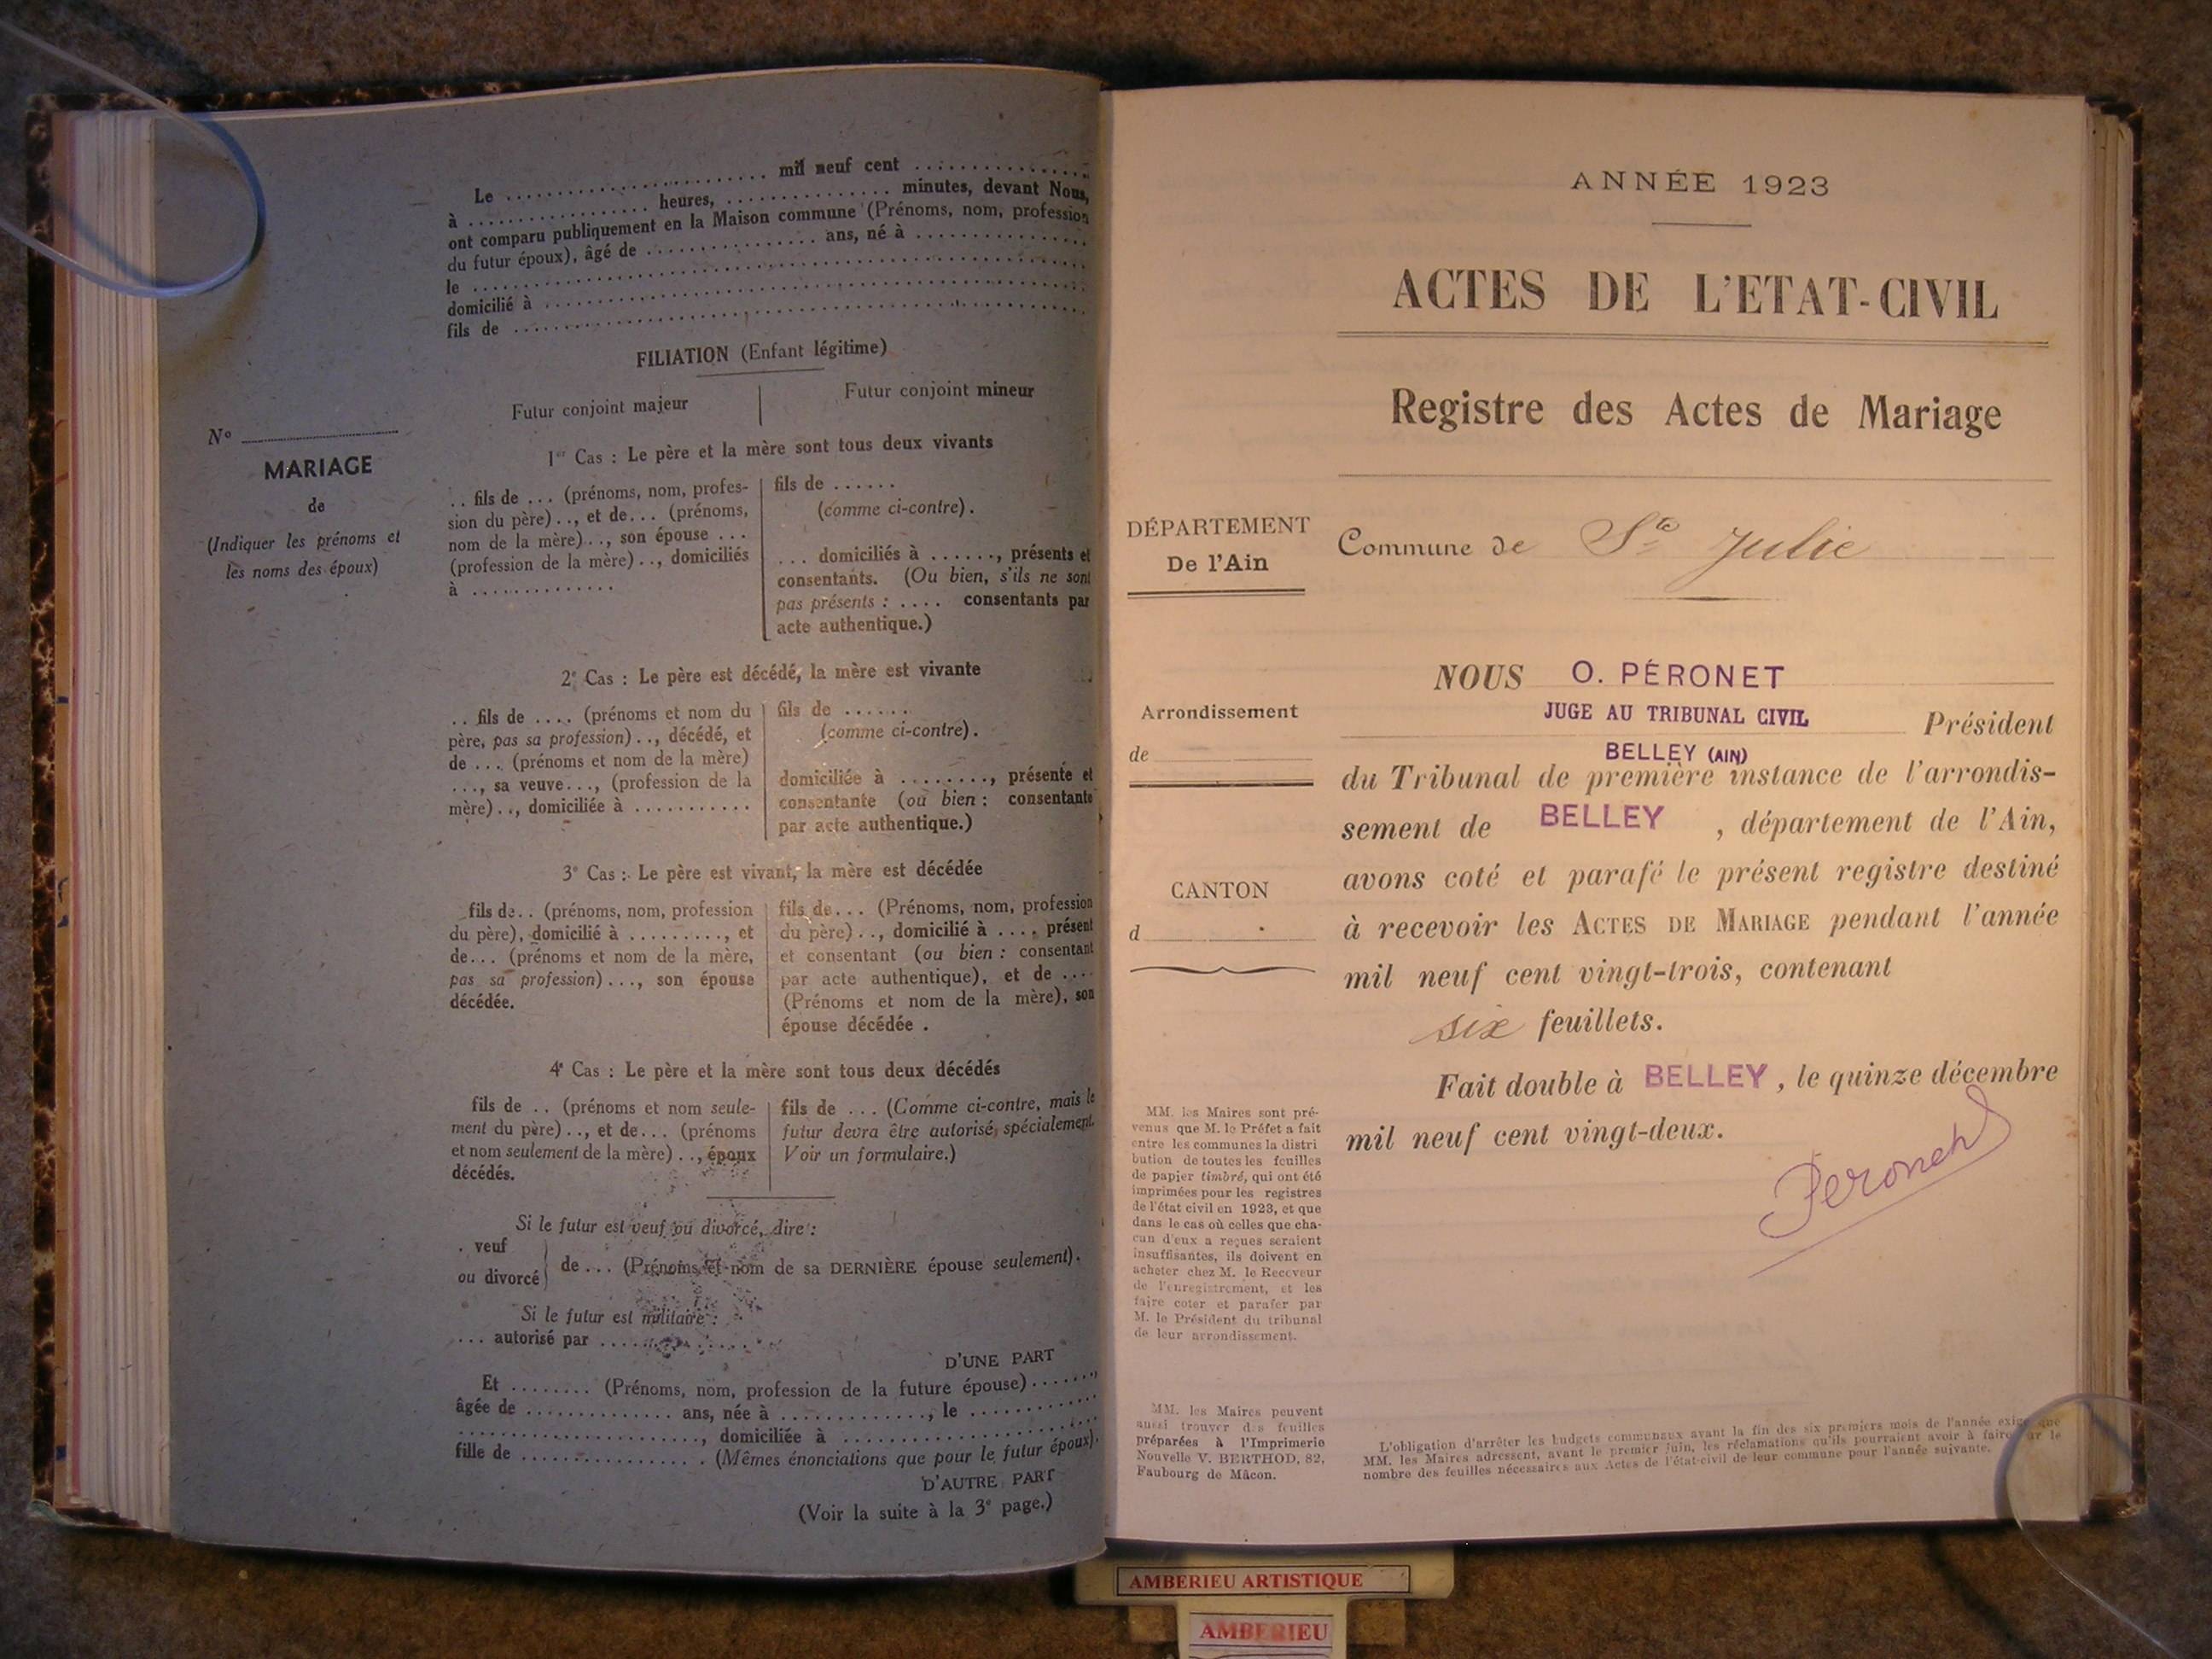 Le ........................ mil neuf cent ................
à .................. heures, ............... minutes, devant Nous,
ont comparu publiquement en la Maison commune (Prénoms, nom, profession
du futur époux), âgé de ................ ans, né à ................
le ................
domicilié à ................
fils de ................
FILIATION (Enfant légitime)
Futur conjoint majeur
Futur conjoint mineur
N° ................
MARIAGE
de
(Indiquer les prénoms et
les noms des époux)
1er Cas : Le père et la mère sont tous deux vivants
.. fils de ... (prénoms, nom, profes-
sion du père).., et de... (prénoms,
nom de la mère).., son épouse ...
(profession de la mère).., domiciliés
à .............
fils de ......
(comme ci-contre).
... domiciliés à ......, présents et
consentants. (Ou bien, s'ils ne sont
pas présents : .... consentants par
acte authentique.)
2e Cas : Le père est décédé, la mère est vivante
.. fils de .... (prénoms et nom du
père, pas sa profession).., décédé, et
de ... (prénoms et nom de la mère)
..., sa veuve..., (profession de la
mère).., domiciliée à ...........
fils de ......
(comme ci-contre).
domiciliée à ........, présente et
consentante (ou bien : consentante
par acte authentique.)
3e Cas : Le père est vivant, la mère est décédée
fils de.. (prénoms, nom, profession
du père), domicilié à ........., et
de... (prénoms et nom de la mère,
pas sa profession)..., son épouse
décédée.
fils de... (Prénoms, nom, profession
du père).., domicilié à .... présent
et consentant (ou bien : consentant
par acte authentique), et de ....
(Prénoms et nom de la mère), son
épouse décédée .
4e Cas : Le père et la mère sont tous deux décédés
fils de .. (prénoms et nom seule-
ment du père).., et de... (prénoms
et nom seulement de la mère) .., époux
décédés.
fils de ... (Comme ci-contre, mais le
futur devra être autorisé, spécialement.
Voir un formulaire.)
Si le futur est veuf ou divorcé, dire :
. veuf
ou divorcé
de ... (Prénoms et nom de sa DERNIÈRE épouse seulement).
Si le futur est militaire :
... autorisé par ................
D'UNE PART
Et ........ (Prénoms, nom, profession de la future épouse).......
âgée de .............. ans, née à ............., le ............
......................., domiciliée à ......................
fille de ................. (Mêmes énonciations que pour le futur époux).
D'AUTRE PART
(Voir la suite à la 3e page.)
ANNÉE 1923
ACTES DE L'ETAT-CIVIL
Registre des Actes de Mariage
DÉPARTEMENT
De l'Ain
Commune de Ste Julie
Arrondissement
de
CANTON
d
NOUS O. PÉRONET
JUGE AU TRIBUNAL CIVIL Président
BELLEY (AIN)
du Tribunal de première instance de l'arrondis-
sement de BELLEY , département de l'Ain,
avons coté et parafé le présent registre destiné
à recevoir les ACTES DE MARIAGE pendant l'année
mil neuf cent vingt-trois, contenant
six feuillets.
Fait double à BELLEY , le quinze décembre
mil neuf cent vingt-deux.
Péronet
MM. les Maires sont pré-
venus que M. le Préfet a fait
entre les communes la distri
bution de toutes les feuilles
de papier timbré, qui ont été
imprimées pour les registres
de l'état civil en 1923, et que
dans le cas où celles que cha-
cun d'eux a reçues seraient
insuffisantes, ils doivent en
acheter chez M. le Receveur
de l'enregistrement, et les
faire coter et parafer par
M. le Président du tribunal
de leur arrondissement.
MM. les Maires peuvent
aussi trouver des feuilles
préparées à l'Imprimerie
Nouvelle V. BERTHOD, 82,
Faubourg de Mâcon.
L'obligation d'arrêter les budgets communaux avant la fin des six premiers mois de l'année exige que
MM. les Maires adressent, avant le premier juin, les réclamations qu'ils pourraient avoir à faire sur le
nombre des feuilles nécessaires aux Actes de l'état-civil de leur commune pour l'année suivante.
AMBERIEU ARTISTIQUE
AMBERIEU